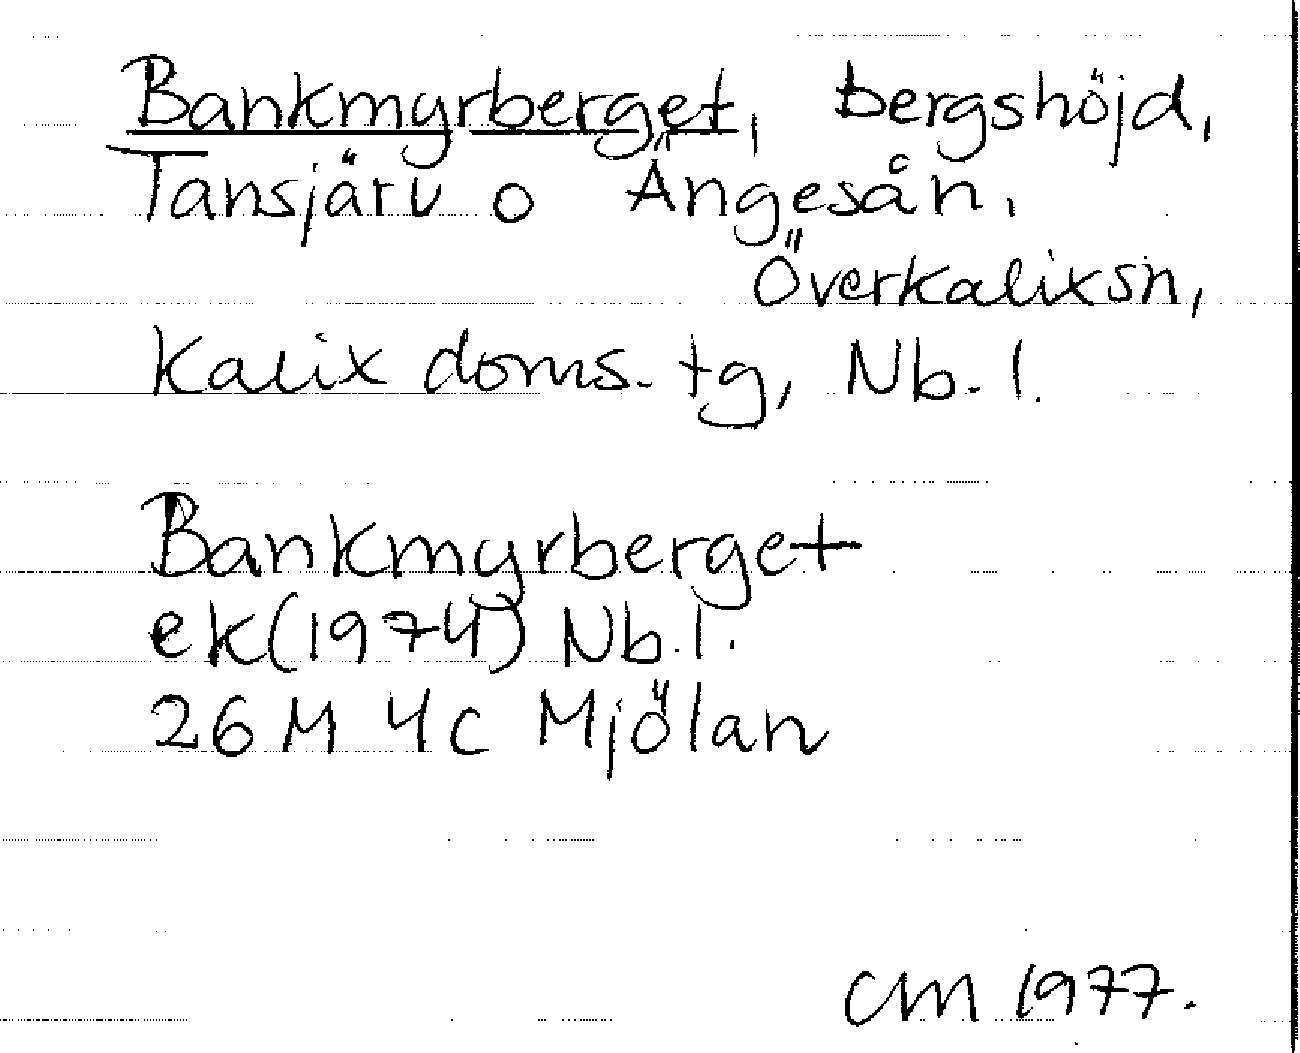 Bankmyrberget, bergshöjd,
Tansjärv o Ängesån,
Överkalix sn,
Kalix doms. tg, Nb. l.
Bankmyrberget
ek(1974) Nb. l.
26 M 4c Mjölan
CM 1977.